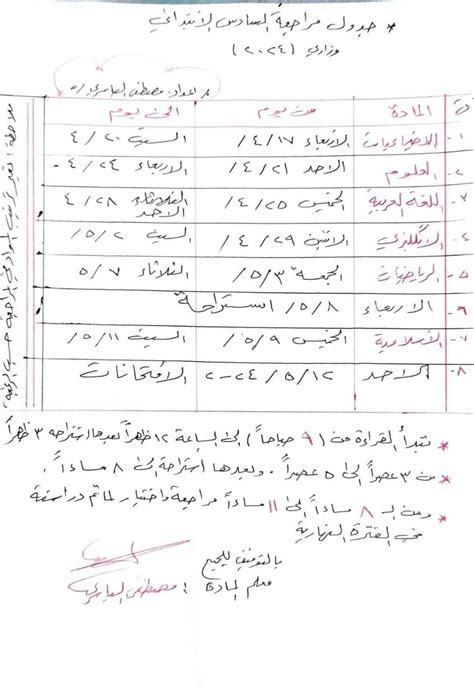 * جدول مراجعة السادس الابتدائي
وزاري (٢٠٢٤)
اعداد: مصطفى الياسري
ت المادة من يوم الى يوم
١- الاجتماعيات الاربعاء ٤/١٧ السبت ٤/٢٠
٢- العلوم الاحد ٤/٢١ الاربعاء ٤/٢٤
٣- اللغة العربية الخميس ٤/٢٥ الاحد ٤/٢٨
٤- الانگليزي الاثنين ٤/٢٩ ٥/٢
٥- الرياضيات الجمعة ٥/٣ الثلاثاء ٥/٧
٦- الاربعاء ٥/٨ استراحة
٧- الاسلامية الخميس ٥/٩ السبت ٥/١١
٨- الاحد ٢٠٢٤/٥/١٢ الامتحانات
* تبدأ القراءة من (٩ صباحاً) الى الساعة ١٢ ظهراً بعدها استراحه ٣ ظهراً
* من ٣ عصراً الى ٥ عصراً. وبعدها استراحة الى ٨ مساءاً.
* ومن الـ ٨ مساءاً الى ١١ مساءاً مراجعة واختبار لما تم دراسته
في الفترة النهارية
بالتوفيق للجميع
معلم المادة: مصطفى الياسري